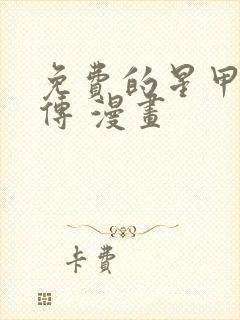 免費的星甲
傳 漫畫
卡費